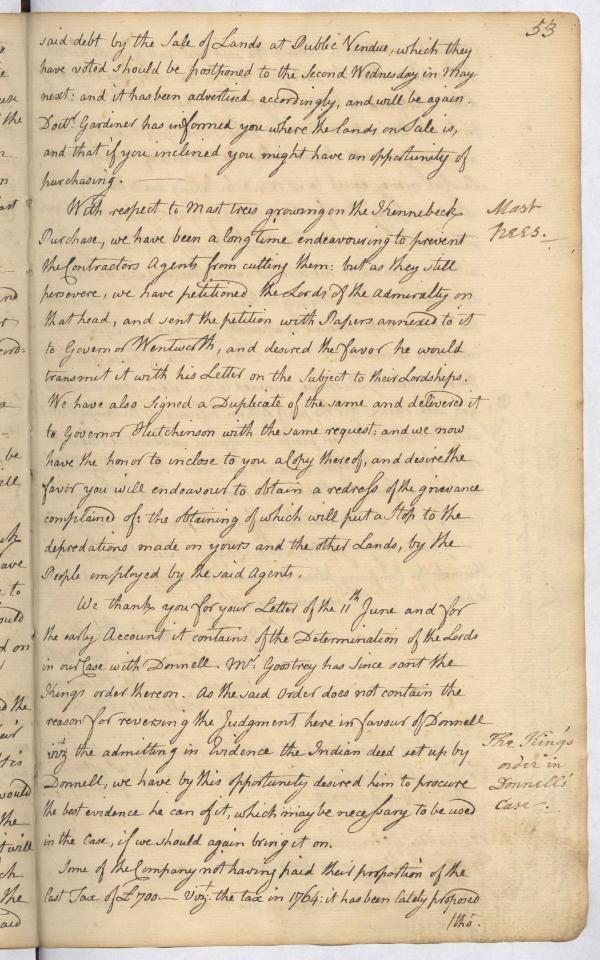 53
said debt by the Sale of Lands at Public Vendue, which they
have voted should be postponed to the Second Wednesday in May
next: and it has been advertised accordingly, and will be again.
Doctr. Gardiner has informed you where the lands on Sale is,
and that if you inclined you might have an opportunity of
purchasing. —
With respect to Mast trees growing on the Kennebeck
Mast
trees. —
Purchase, we have been a long time endeavouring to prevent
the Contractors Agents from cutting them: but as they still
persevere, we have petitioned the Lords of the Admiralty on
that head, and sent the petition with Papers annexed to it
to Governor Wentworth, and desired the favor he would
transmit it with his Letter on the Subject to their Lordships.
We have also Signed a Duplicate of the same and delivered it
to Governor Hutchinson with the same request: and we now
have the honor to inclose to you a Copy thereof, and desire the
favor you will endeavour to obtain a redress of the grievance
complained of: the obtaining of which will put a Stop to the
depredations made on yours and the other Lands, by the
People employed by the said Agents.
We thank you for your Letter of the 11th June and for
the early Account it contains of the Determination of the Lords
in our Case with Donnell. Mr. Goostrey has Since sent the
Kings order thereon. As the said Order does not contain the
reason for reversing the Judgment here in favour of Donnell
vizt. the admitting in Evidence the Indian deed set up by
The King's
order in
Donnell's
Case —.
Donnell, we have by this opportunity desired him to procure
the best evidence he can of it, which may be necessary to be used
in the Case, if we should again bring it on.
Some of the Company not having paid their proportion of the
last Tax of £700 — Vizt. the tax in 1764: it has been lately proposed
/tho'.